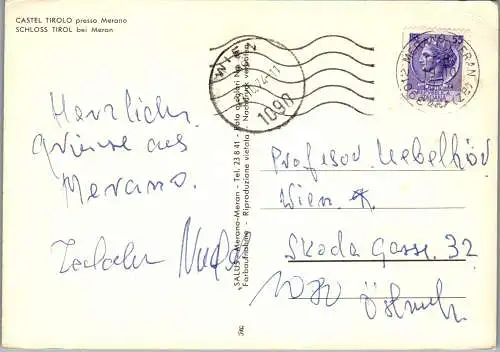 CASTEL TIROLO presso Merano
SCHLOSS TIROL bei Meran
Herzliche
Grüsse aus
Merano.
"SALUS" Merano-Meran - Tel. 23 8 41 - Foto a colori
Farbaufnahme - Riproduzione vietata - Nachdruck verboten
WIEN
1090
Professor Uebelhör
Wien
Skoda Gasse. 32
1080 Österreich